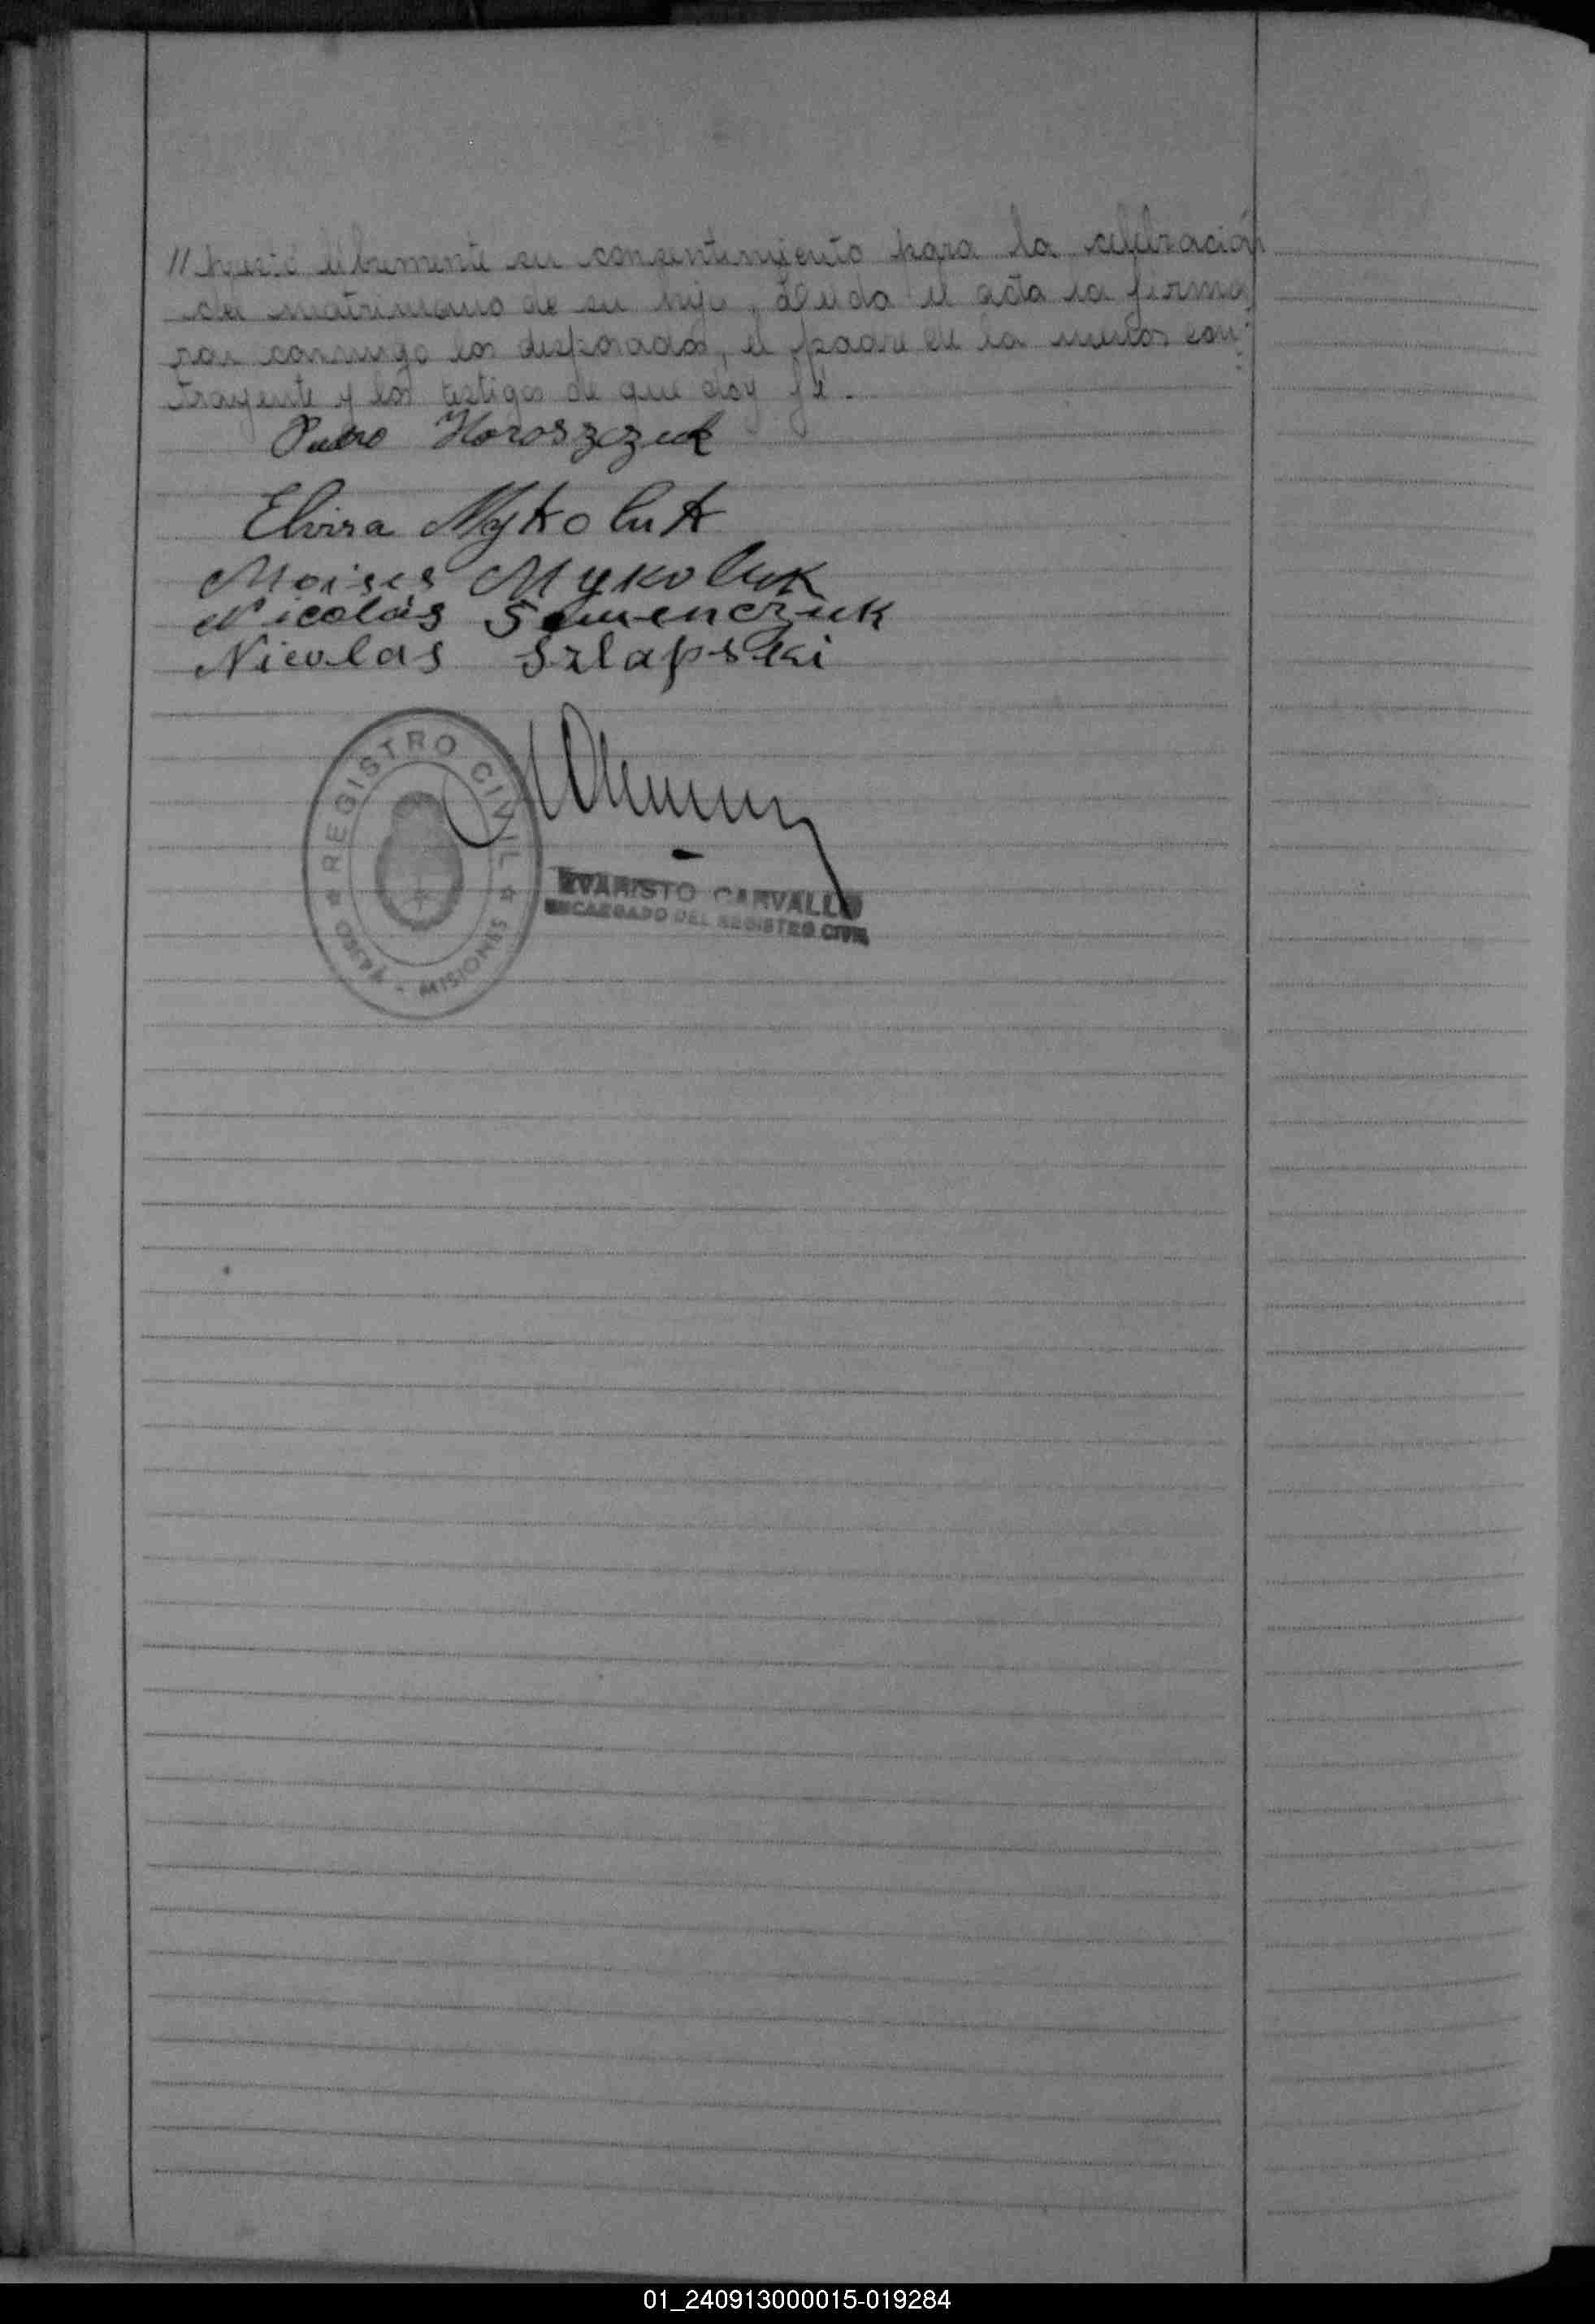 // presto libremente su consentimiento para la celebración
del matrimonio de su hija, Leída el acta la firma
ron conmigo los desposados, el padre de la menor con-
trayente y los testigos de que doy fé.-
Pedro Horoszczuk
Elvira Mykoluk
Moises Mykoluk
Nicolás Semenczuk
Nicolas Szlapski
REGISTRO CIVIL
OBERÁ - MISIONES
EVARISTO CARVALLO
ENCARGADO DEL REGISTRO CIVIL
01_240913000015-019284